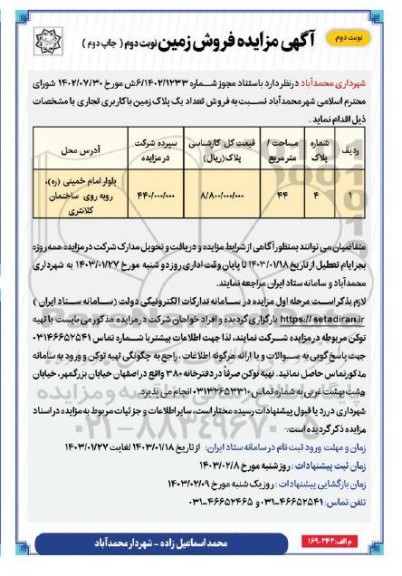 نوبت دوم
آگهی مزایده فروش زمین نوبت دوم ( چاپ دوم )
شهرداری محمدآباد در نظر دارد باستناد مجوز شماره ۶/۱۴۰۲/۱۲۳۳ش مورخ ۱۴۰۲/۰۷/۳۰ شورای
محترم اسلامی شهر محمدآباد نسبت به فروش تعداد یک پلاک زمین با کاربری تجاری با مشخصات
ذیل اقدام نماید.
ردیف شماره پلاک مساحت / متر مربع قیمت کل کارشناسی پلاک(ریال) سپرده شرکت در مزایده آدرس محل
۱ ۴ ۴۴ ۸/۸۰۰/۰۰۰/۰۰۰ ۴۴۰/۰۰۰/۰۰۰ بلوار امام خمینی (ره)، روبه روی ساختمان کلانتری
متقاضیان می توانند بمنظور آگاهی از شرایط مزایده و دریافت و تحویل مدارک شرکت در مزایده همه روزه
بجز ایام تعطیل از تاریخ ۱۴۰۳/۰۱/۱۸ تا پایان وقت اداری روز دوشنبه مورخ ۱۴۰۳/۰۱/۲۷ به شهرداری
محمدآباد و سامانه ستاد ایران مراجعه نمایند.
لازم بذکر است مرحله اول مزایده در سامانه تدارکات الکترونیکی دولت (سامانه ستاد ایران )
https:// setadiran.ir بارگزاری گردیده و افراد خواهان شرکت در مزایده مذکور می بایست با تهیه
توکن مربوطه در مزایده شرکت نمایند، لذا جهت اطلاعات بیشتر با شماره تماس ۰۳۱۴۶۶۵۲۵۴۱
جهت پاسخ گویی به سوالات و یا ارائه هرگونه اطلاعات ، راجع به چگونگی تهیه توکن و ورود به سامانه
مذکور تماس حاصل نمایند. تهیه توکن صرفاً در دفترخانه ۳۸۰ واقع در اصفهان خیابان بزرگمهر، خیابان
هشت بهشت غربی به شماره تماس ۰۳۱۳۲۶۵۳۳۱۰ انجام می پذیرد.
شهرداری در رد یا قبول پیشنهادات رسیده مختار است، سایر اطلاعات و جزئیات مربوط به مزایده در اسناد
مزایده ذکر گردیده است.
زمان و مهلت ورود ثبت نام در سامانه ستاد ایران: از تاریخ ۱۴۰۳/۰۱/۱۸ لغایت ۱۴۰۳/۰۱/۲۷
زمان ثبت پیشنهادات : روز شنبه مورخ ۱۴۰۳/۰۲/۸
زمان بازگشایی پیشنهادات : روز یک شنبه مورخ ۱۴۰۳/۰۲/۰۹
تلفن تماس: ۴۶۶۵۲۵۴۱-۰۳۱ و ۴۶۶۵۲۴۶۵-۰۳۱
م الف: ۱۶۹۰۲۴۲
محمد اسماعیل زاده - شهردار محمدآباد
۰۲۱-۸۸۳۴۹۶۷۰